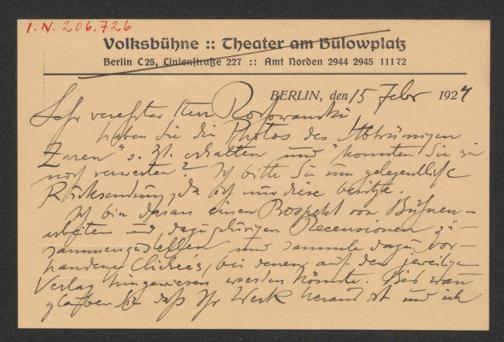 I.N. 206.726
Volksbühne :: Theater am Bülowplatz
Berlin C 25, Linienstraße 227 :: Amt Norden 2944 2945 11172
BERLIN, den 15 Febr 1924
Sehr verehrter Herr
haben Sie die Photos des Abtrünnigen
Zaren" s. Zt. erhalten und konnten Sie sie
noch verwerten? Ich bitte Sie um gelegentliche
Rücksendung, da ich nur diese besitze.
Ich bin daran einen Prospekt von Bühnen-
arbeiten und dazugehörigen Recensionen zu-
sammenzustellen und sammle dazu vor-
handene Clichees, bei denen auf den jeweiligen
Verlag hingewiesen werden könnte. Bis wann
glauben Sie daß Ihr Werk heraus ist und ich